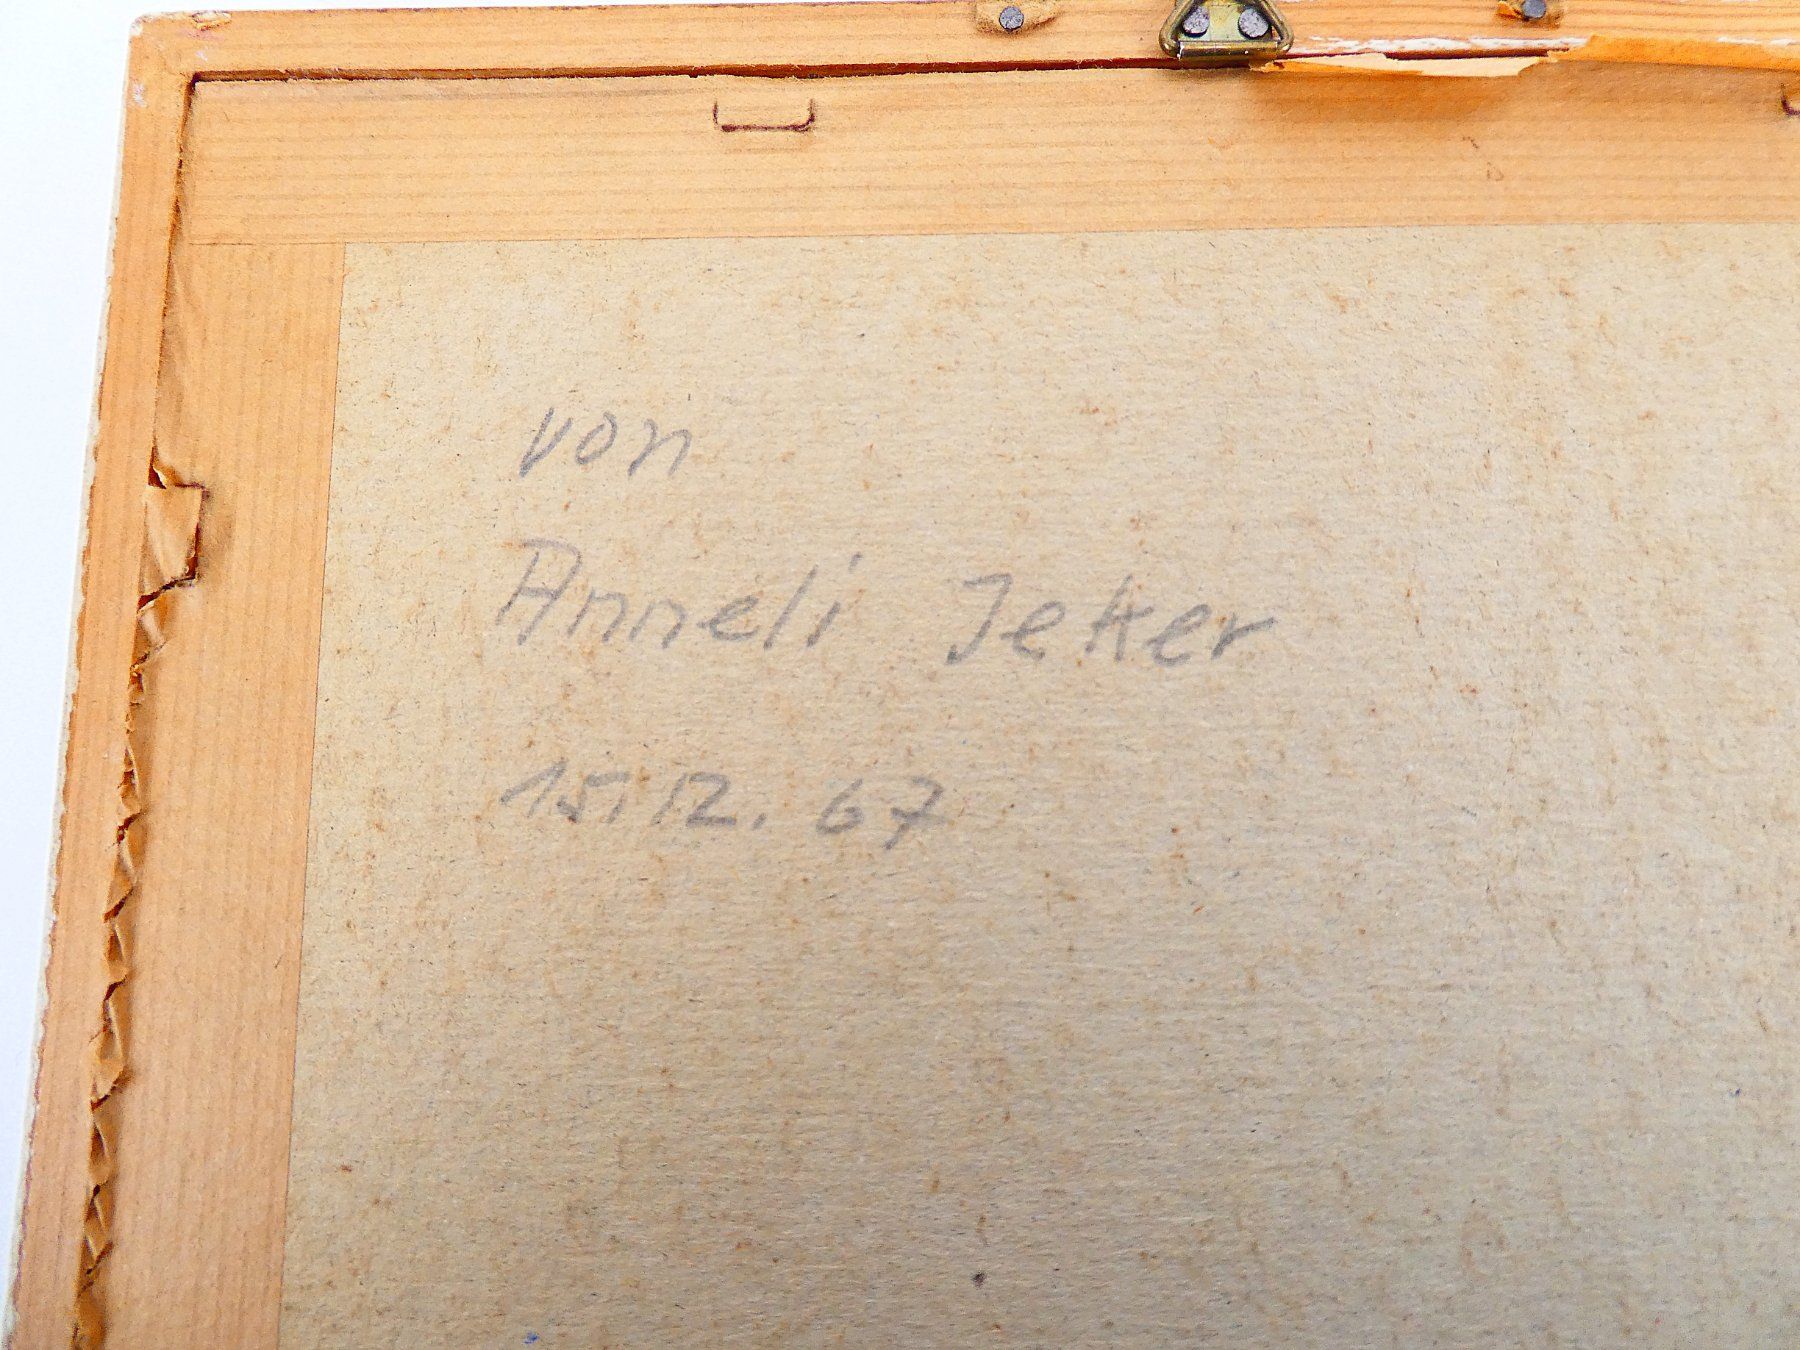 von
Anneli Jeker
15.12.67